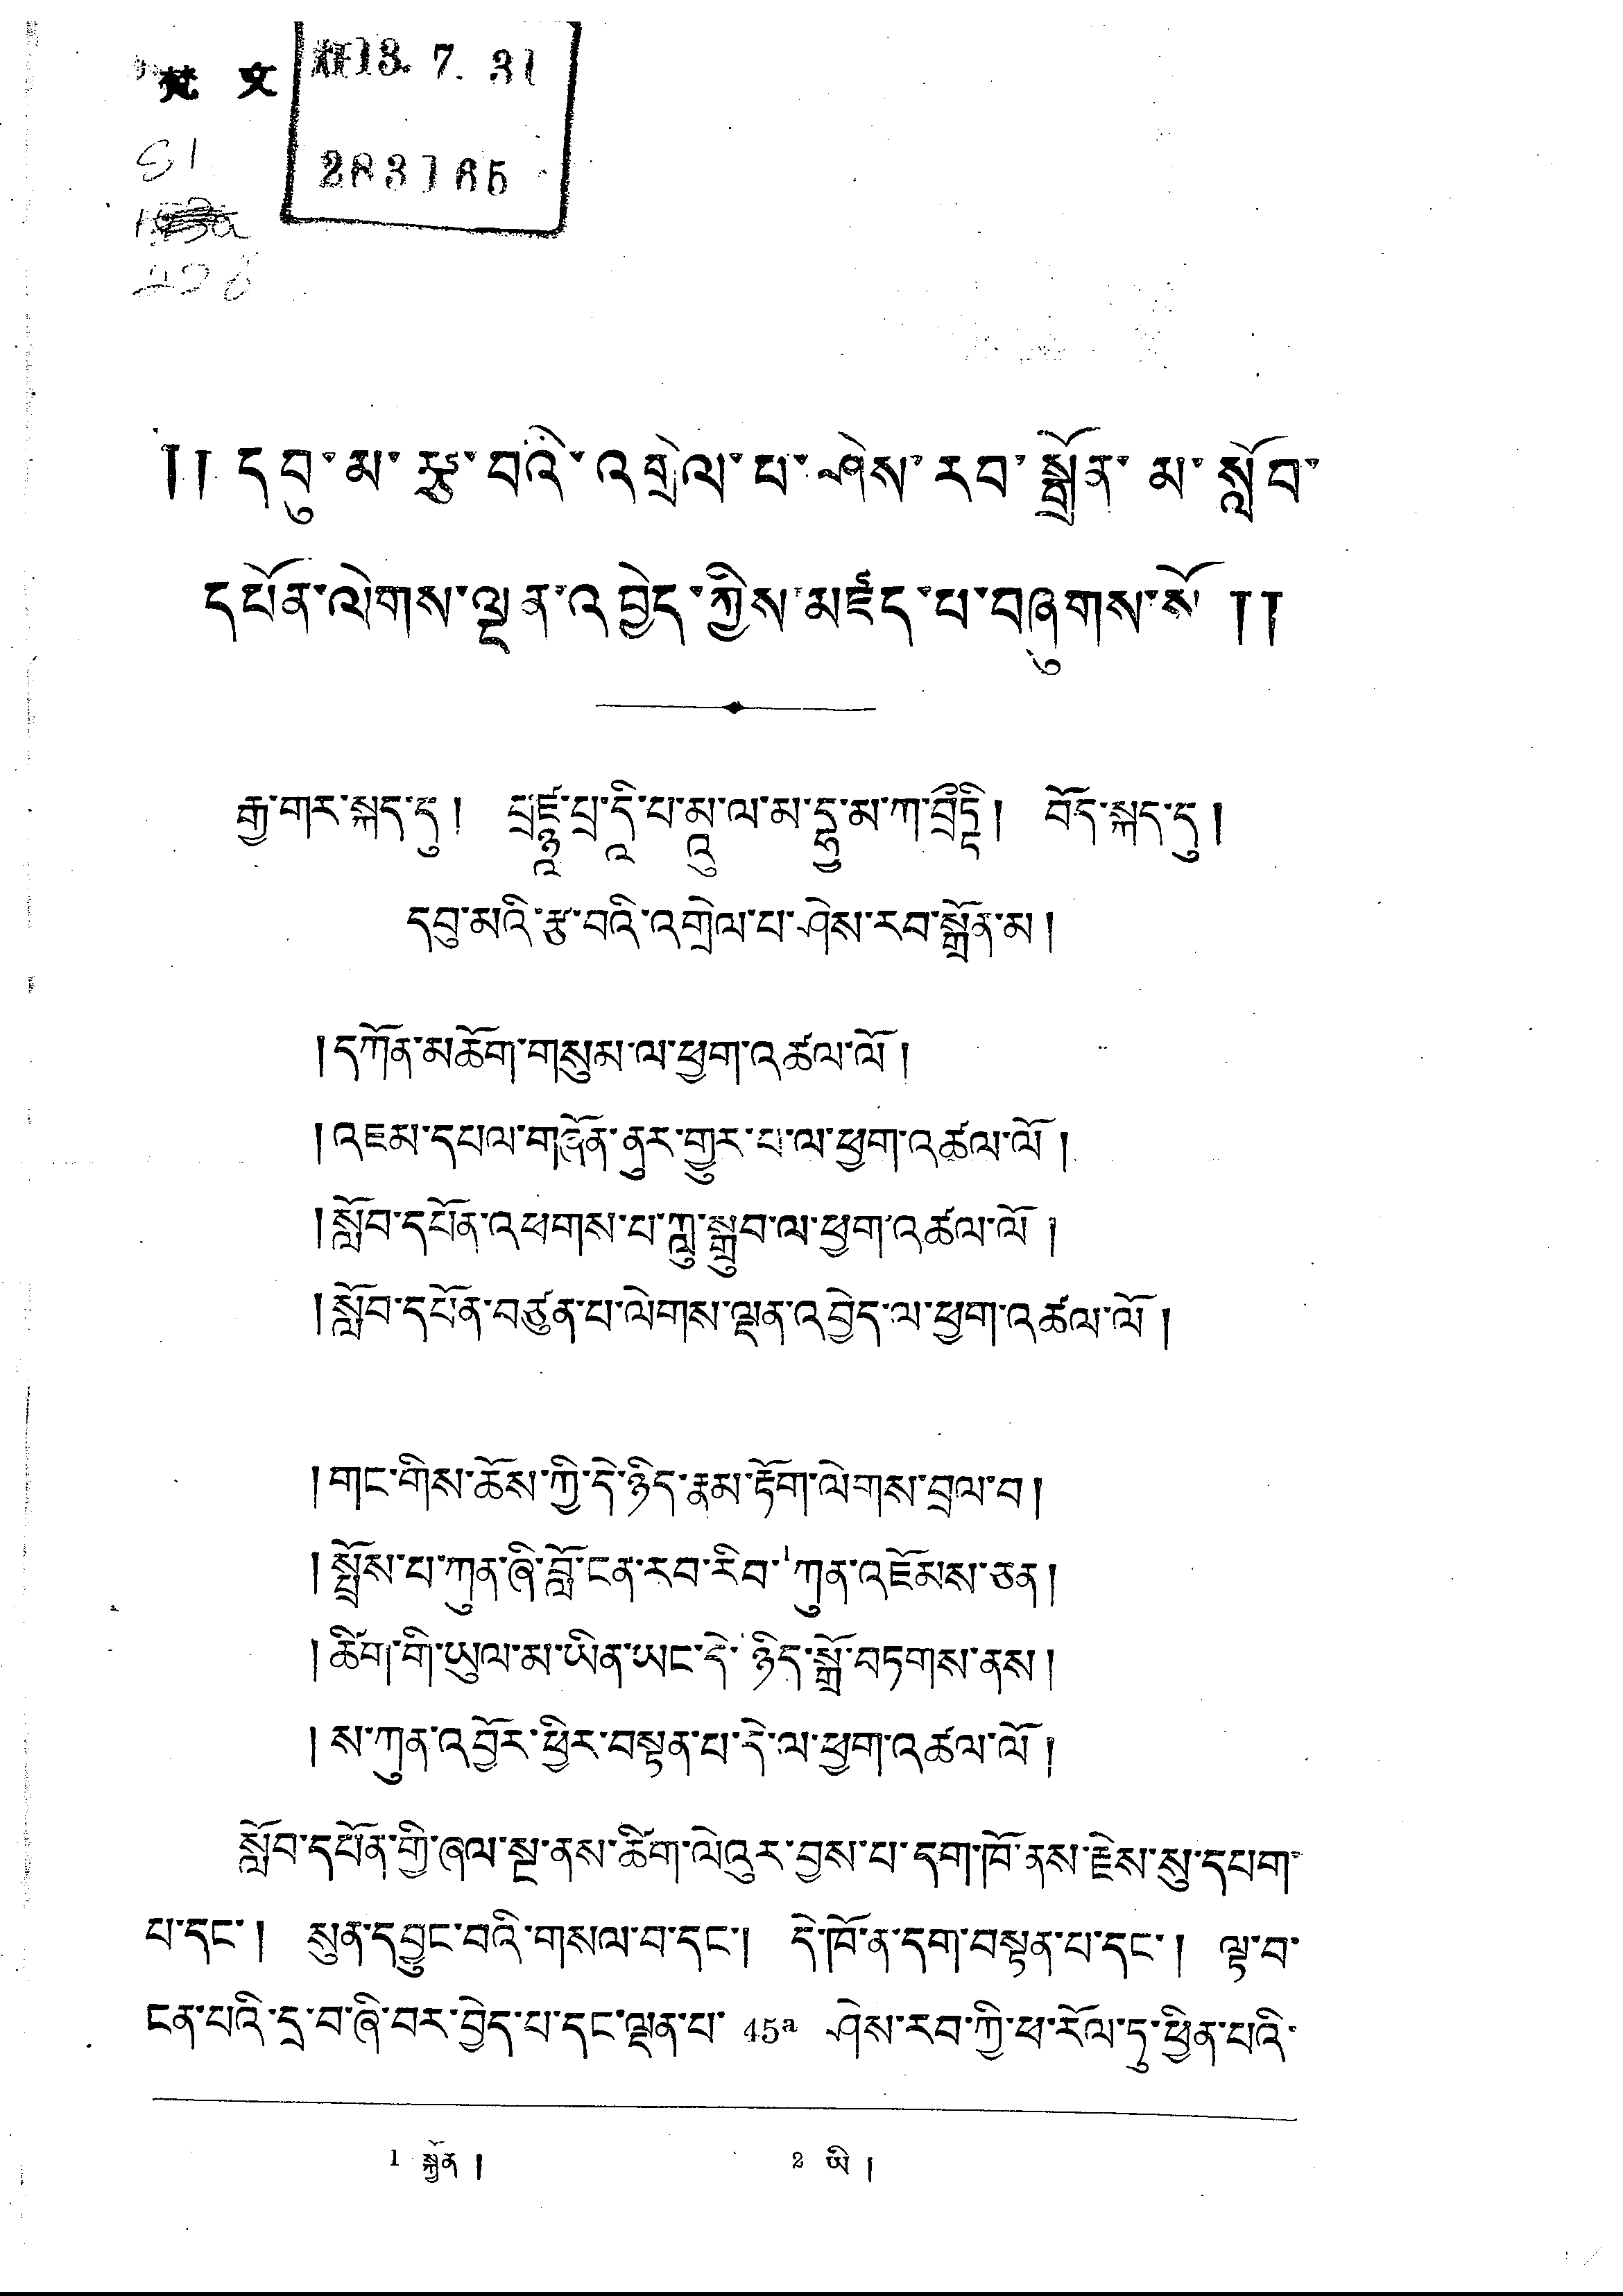 梵 文
昭13. 7. 31
283165
།། དབུ་མ་རྩ་བའི་འགྲེལ་པ་ཤེས་རབ་སྒྲོན་མ་སློབ་
དཔོན་ལེགས་ལྡན་འབྱེད་ཀྱིས་མཛད་པ་བཞུགས་སོ །།
རྒྱ་གར་སྐད་དུ། པྲཛྙཱ་པྲ་དཱི་པ་མཱུ་ལ་མ་དྷྱ་མ་ཀ་བྲྀཏྟི། བོད་སྐད་དུ།
དབུ་མའི་རྩ་བའི་འགྲེལ་པ་ཤེས་རབ་སྒྲོན་མ།
།དཀོན་མཆོག་གསུམ་ལ་ཕྱག་འཚལ་ལོ།
།འཇམ་དཔལ་གཞོན་ནུར་གྱུར་པ་ལ་ཕྱག་འཚལ་ལོ།
།སློབ་དཔོན་འཕགས་པ་ཀླུ་སྒྲུབ་ལ་ཕྱག་འཚལ་ལོ།
།སློབ་དཔོན་བཙུན་པ་ལེགས་ལྡན་འབྱེད་ལ་ཕྱག་འཚལ་ལོ།
།གང་གིས་ཆོས་ཀྱི་དེ་ཉིད་རྣམ་རྟོག་ལེགས་བྲལ་བ།
།སྤྲོས་པ་ཀུན་ཞི་བློ་ངན་རབ་རིབ་¹ཀུན་འཇོམས་ཅན།
།ཚིག་གི་ཡུལ་མ་ཡིན་ཡང་དེ་ཉིད་སྒྲོ་བཏགས་ནས།
།ས་ཀུན་འབྱོར་ཕྱིར་བསྟན་པ་དེ་ལ་ཕྱག་འཚལ་ལོ།
སློབ་དཔོན་གྱི་ཞལ་སྔ་ནས་ཚིག་ལེའུར་བྱས་པ་དག་ཁོ་ནས་རྗེས་སུ་དཔག་
པ་དང་། སུན་དབྱུང་བའི་གསལ་བ་དང་། དེ་ཁོ་ན་དག་བསྟན་པ་དང་། ལྟ་བ་
ངན་པའི་དྲ་བ་ཞི་བར་བྱེད་པ་དང་ལྡན་པ་ 45ª ཤེས་རབ་ཀྱི་ཕ་རོལ་ཏུ་ཕྱིན་པའི་
1 སྐྱོན། 2 ཡི།